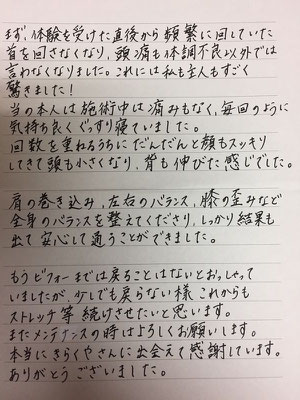 まず、体験を受けた直後から頻繁に回していた
首を回さなくなり、頭痛も体調不良以外では
言わなくなりました。これには私も主人もすごく
驚きました!
当の本人は施術中は痛みもなく、毎回のように
気持ち良くぐっすり寝ていました。
回数を重ねるうちにだんだんと顔もスッキリ
してきて頭も小さくなり、背も伸びた感じでした。
肩の巻き込み、左右のバランス、膝の歪みなど
全身のバランスを整えてくださり、しっかり結果も
出て安心して通うことができました。
もうビフォーまでは戻ることはないとおっしゃって
いましたが、少しでも戻らない様これからも
ストレッチ等続けさせたいと思います。
またメンテナンスの時はよろしくお願いします。
本当にきらくやさんに出会えて感謝しています。
ありがとうございました。